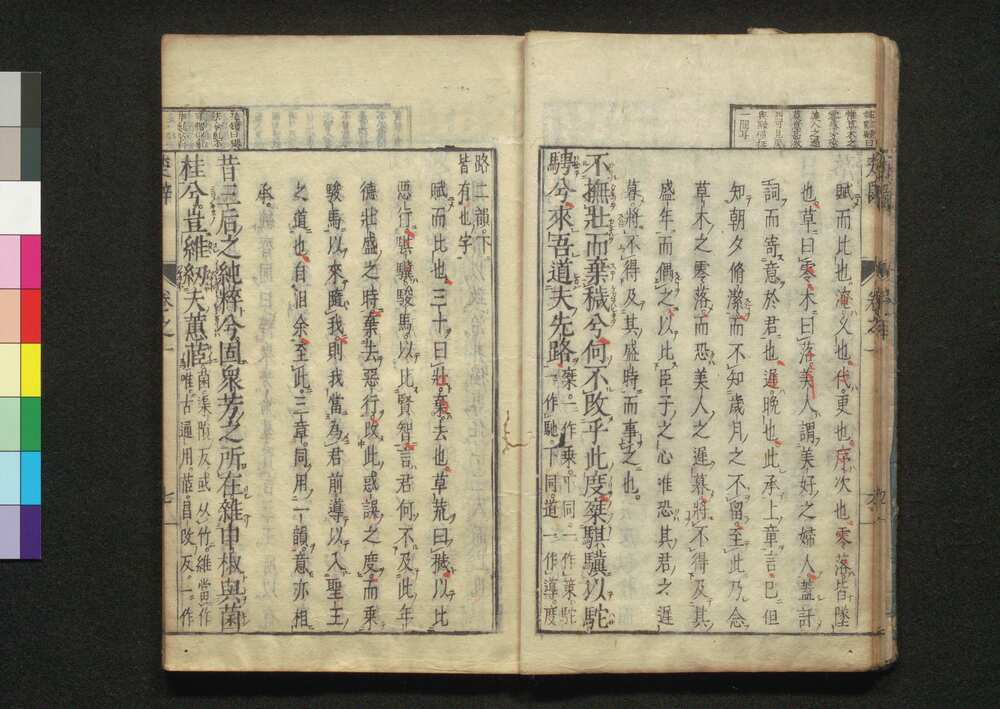 賦而比也淹久也代更也序次也零落皆墜
也草曰零木曰落美人謂美好之婦人蓋託
詞而寄意於君也遲晚也此承上章言已但
知朝夕脩潔而不知歲月之不留至此乃念
草木之零落而恐美人之遲暮將不得及其
盛年而偶之以比臣子之心唯恐其君之遲
暮將不得及其盛時而事之也
不撫壯而棄穢兮何不改乎此度椉騏驥以駝
騁兮來吾道夫先路
椉一作乗下同一作策駝
一作馳下同道一作導度
路二韻下
皆有也字
賦而比也三十曰壯棄去也草荒曰穢以比
惡行騏驥駿馬以比賢智言君何不及此年
德壯盛之時棄去惡行改此惑誤之度而乘
駿馬以來隨我則我當為君前導以入聖王
之道也自汨余至此三章同用一韻意亦相
承
昔三后之純粹兮固衆芳之所在雜申椒與菌
桂兮豈維紉夫蕙茝
菌渠隕反或从竹維當作
唯古通用茝昌改反一作
楚辭
卷之一
七